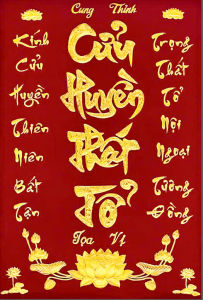 Cung Thỉnh
Cửu
Huyền
Thất
Tổ
Tọa Vị
Kính
Cửu
Huyền
Thiên
Niên
Bất
Tận
Trọng
Thất
Tổ
Nội
Ngoại
Tường
Đồng